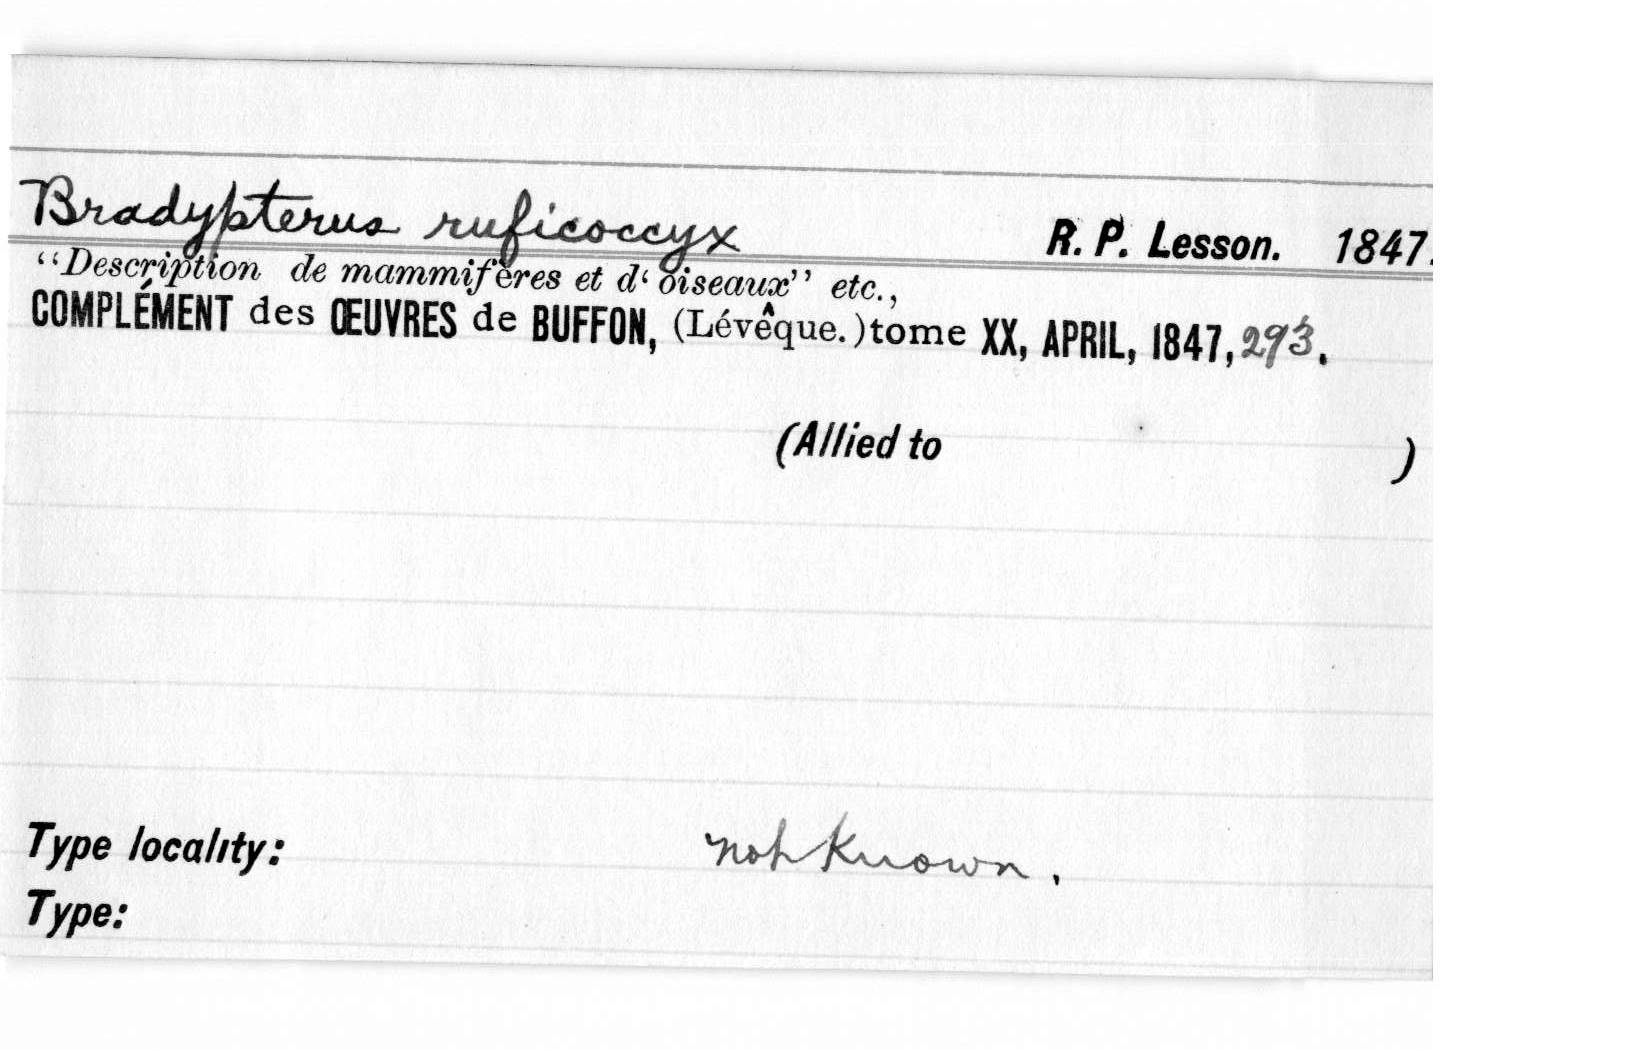 Bradypterus ruficoccyx R. P. Lesson. 1847.
“Description de mammifères et d‘ oiseaux” etc.,
COMPLÉMENT des ŒUVRES de BUFFON, (Lévêque.) tome XX, APRIL, 1847, 293.
(Allied to )
Type locality: not known.
Type: